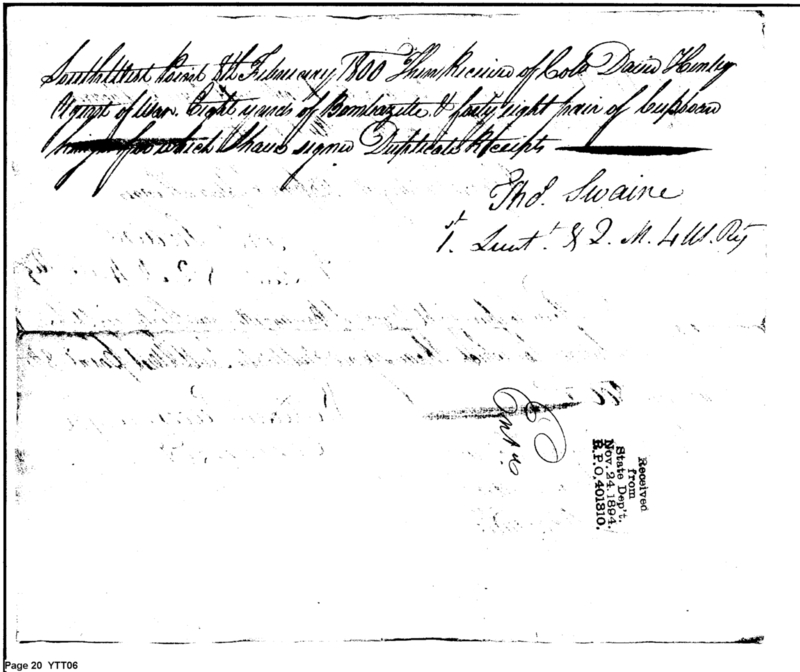 South West Point 8th February 1800 Then Received of Colo. David Henley
Agent of War. Eight yards of Bombazette & forty eight pair of Cupboard
hinges for which I have signed Duplicate Receipts
Tho.s Swaine
1.st Lieut.t & Q. M. 4 US. Reg
Received
from
State Dep't.
Nov. 24. 1894.
R. P. O, 401310.
Page 20 YTT06